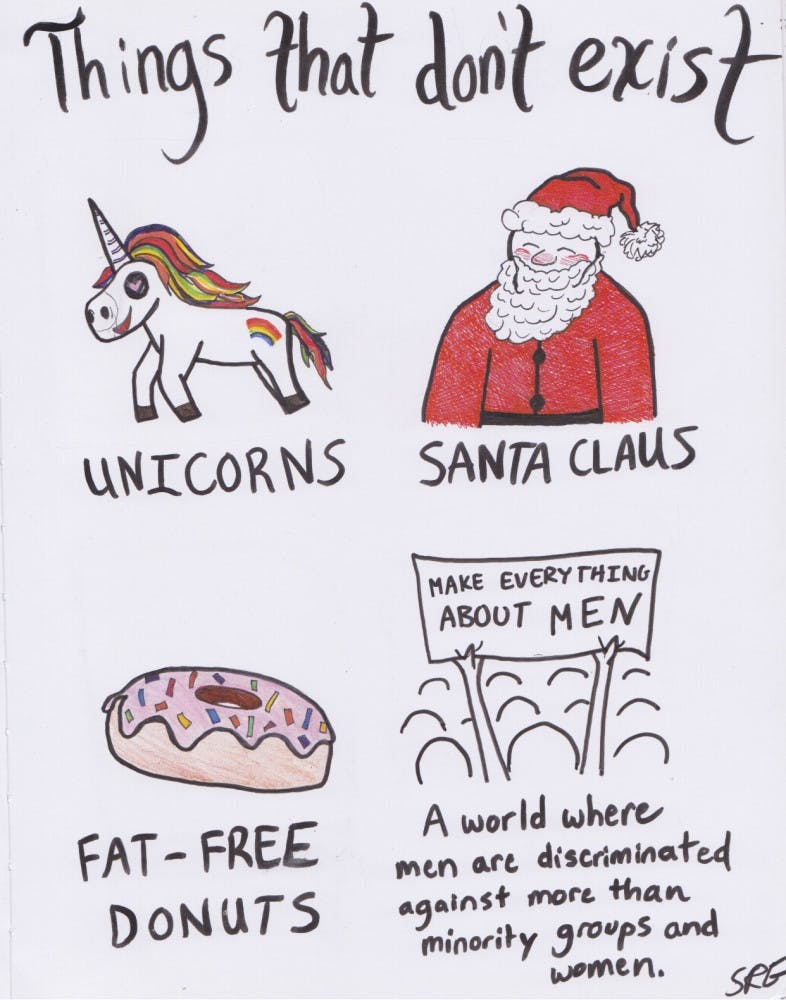 Things that don't exist
UNICORNS
SANTA CLAUS
MAKE EVERYTHING
ABOUT MEN
FAT-FREE
DONUTS
A world where
men are discriminated
against more than
minority groups and
women.
SRG